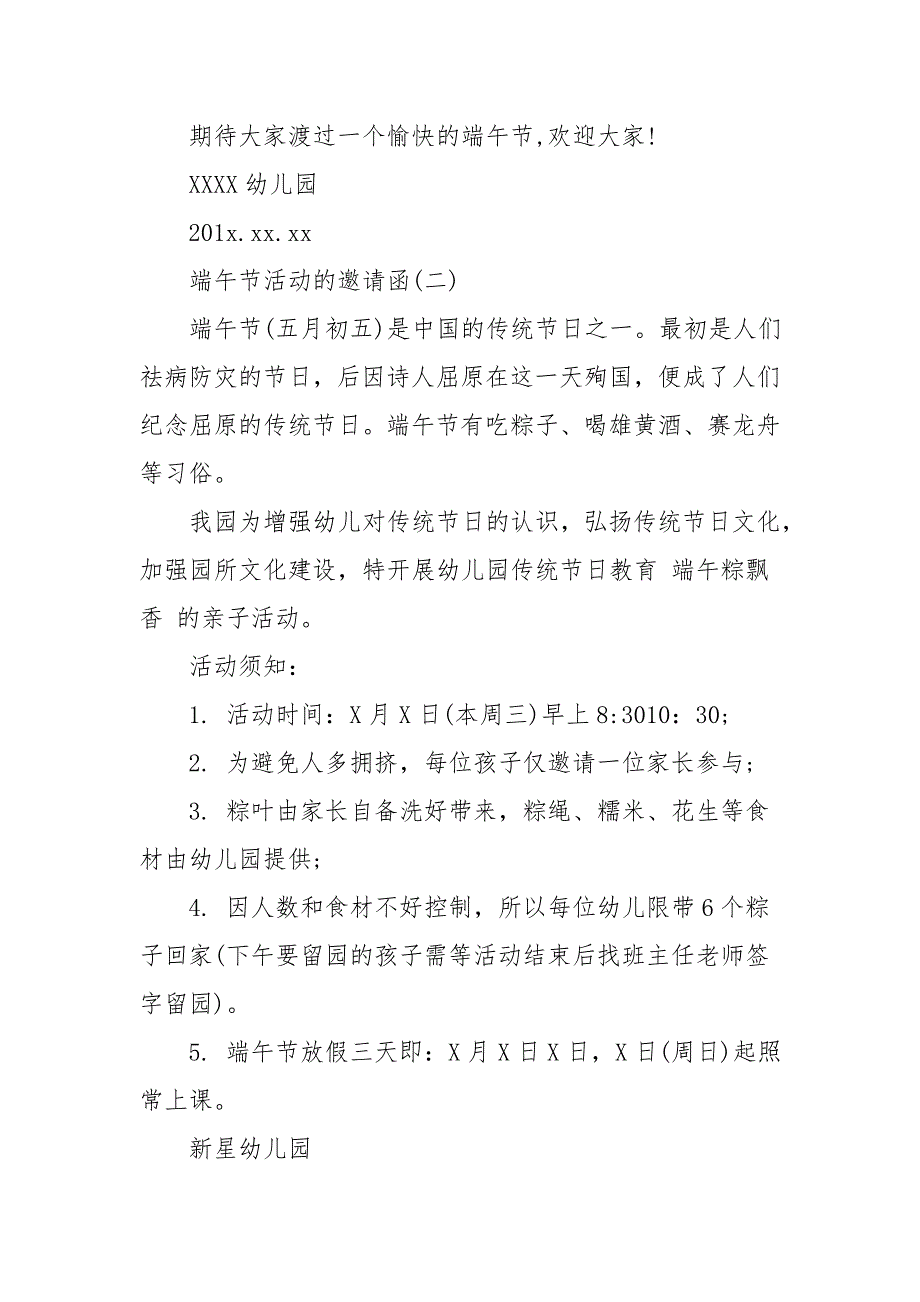 期待大家渡过一个愉快的端午节,欢迎大家!
XXXX 幼儿园
201x.xx.xx
端午节活动的邀请函(二)
端午节(五月初五)是中国的传统节日之一。最初是人们
祛病防灾的节日，后因诗人屈原在这一天殉国，便成了人们
纪念屈原的传统节日。端午节有吃粽子、喝雄黄酒、赛龙舟
等习俗。
我园为增强幼儿对传统节日的认识，弘扬传统节日文化，
加强园所文化建设，特开展幼儿园传统节日教育 端午粽飘
香 的亲子活动。
活动须知：
1. 活动时间：X 月 X 日(本周三)早上 8:3010：30;
2. 为避免人多拥挤，每位孩子仅邀请一位家长参与;
3. 粽叶由家长自备洗好带来，粽绳、糯米、花生等食
材由幼儿园提供;
4. 因人数和食材不好控制，所以每位幼儿限带 6 个粽
子回家(下午要留园的孩子需等活动结束后找班主任老师签
字留园)。
5. 端午节放假三天即：X 月 X 日 X 日，X 日(周日)起照
常上课。
新星幼儿园